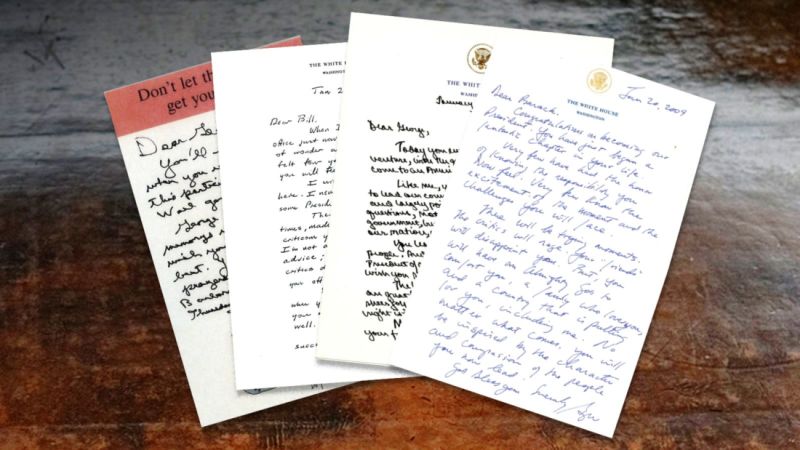 Don't let th
get you
Dear Geo
You'll
when you
This partic
Well go
George
memory
wish you
but.
praying
B
Thursday
THE WHITE H
WASHINGTON
Jan 2
Dear Bill,
When I
office just now
of wonder a
felt four y
you will fee
I wi
here. I ne
some Presid
The
times, made
criticism y
I'm not a
advice;
critics d
you off
you
when y
your
well.
succ
THE WH
WASHI
January
Dear George,
Today you
venture, with the g
come to an Ameri
Like me, y
to lead our coun
and largely po
questions,
government,
our nation
You lea
people,
President
wish you
The
are great
sheer joy
night is
N
your f
THE WHITE HOUSE
WASHINGTON
Jan 20, 2009
Dear Barack,
Congratulations on becoming our
President. You have just begun a
fantastic chapter in your life.
Very few have had the honor
of knowing the responsibility you
now feel. Very few know the
excitement of the moment and the
challenges you will face.
There will be trying moments.
The critics will rage. Your "friends"
will disappoint you. But, you
will have an Almighty God to
comfort you, a family who loves you,
and a country that is pulling
for you, including me. No
matter what comes, you will
be inspired by the character
and compassion of the people
you now lead.
God bless you. Sincerely,